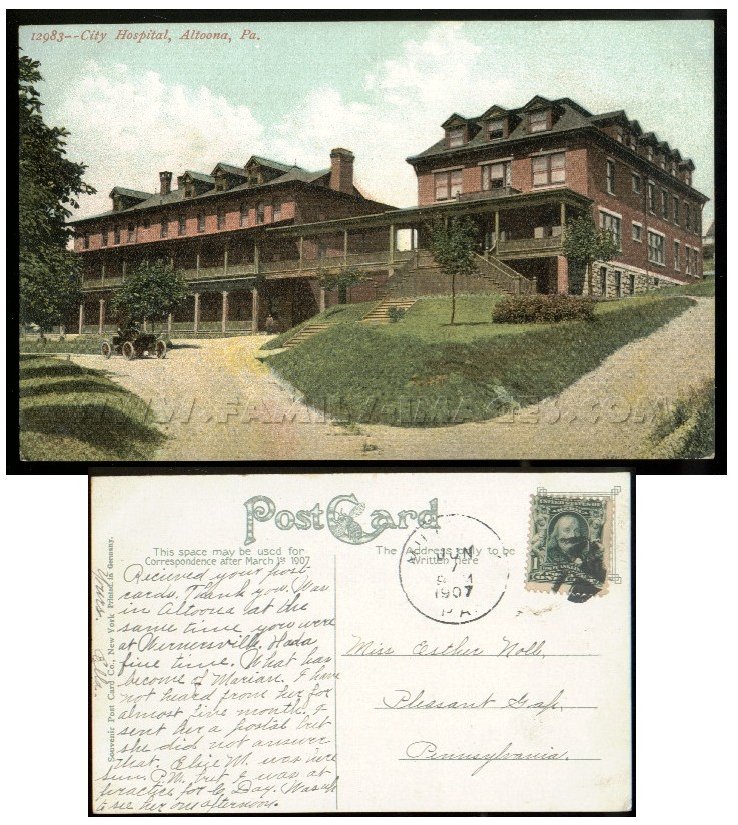 12983--City Hospital, Altoona, Pa.
WWW.FAMILY-IMAGES.COM
Post Card
This space may be used for
Correspondence after March 1st 1907
The Address only to be
Written here
Souvenir Post Card Co., New York. Printed in Germany.
JUN
1907
PA.
Received your post
cards. Thank you. Was
in Altoona at the
same time you were
at Wernersville. Had a
fine time. What has
become of Marian. I have
not heard from her for
almost five month. I
sent her a postal but
she did not answer
that. M. was here
Sun. P.M. but I was at
practice for C. Day. Was
to see her one afternoon.
Miss Esther Noll,
Pleasant Gap,
Pennsylvania.